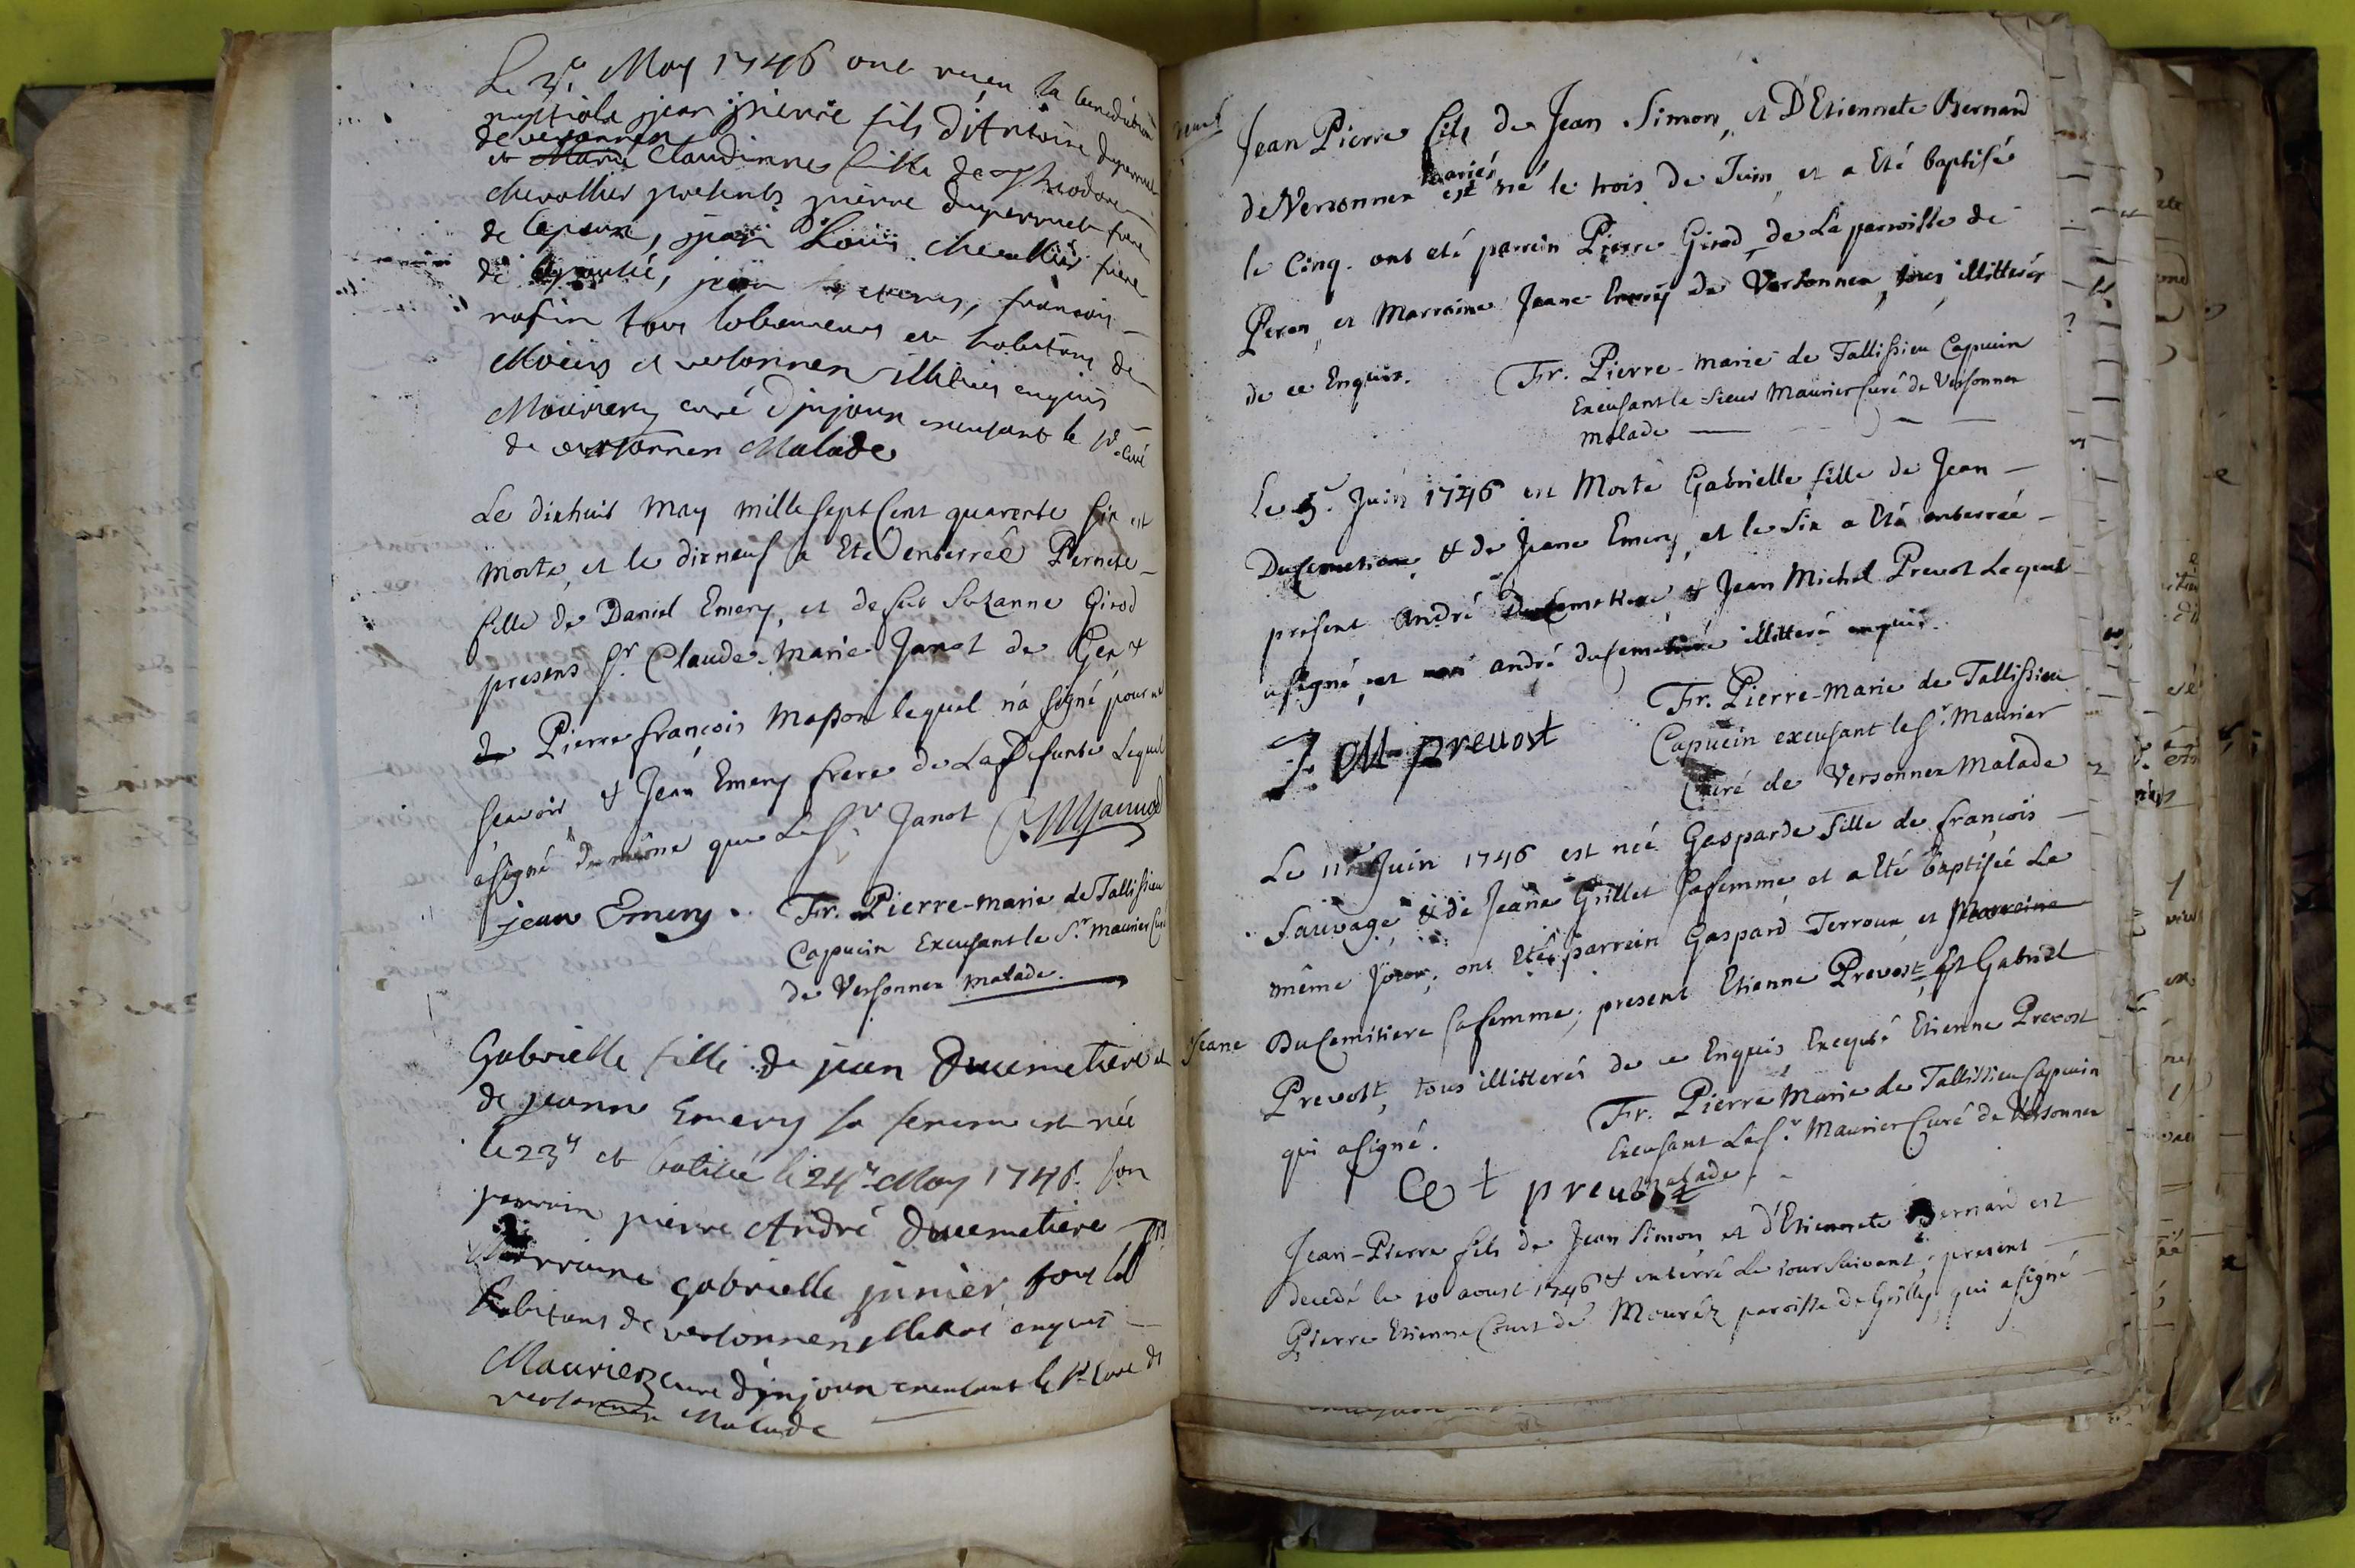 Le 3e. May 1746 ont reçu la benediction
nuptiale jean pierre fils d'Antoine duperruet
de versonnex
et Marie Claudinne fille de Theodore
chevallier presents pierre duperruet frere
de lepoux, Louis chevallier frere
de lepousé, francois
tous laboureurs et habitans de
Moëns et versonnex illiteres enquis
Mourierz curé d'injoux excusant le Sr curé
de versonnex Malade
Le dixhuit may mille sept Cent quarente six est
Morte, et le dixneuf a Eté enterreé Pernete
fille de Daniel Emery, et de feu Suzanne Girod
presens Sr. Claude-Marie Janot de Gex &
de Pierre francois Masson lequel n'a signé pour ne
scavoir & Jean Emery frere de La Defunte Lequel
asigné de même que Le Sr. Janot
jean Emery. Fr. Pierre-marie de Tallissieu
Capucin Excusant le Sr. maurier Curé
de Versonnex malade.
Gabrielle fille de jean Ducimetiere et
de jeanne Emery sa femme est née
le 23e et batisée le 24e May 1746. son
parrain pierre André Ducimetiere
Marraine gabrielle junier, tous
habitans de versonnex illiteres enquis
Maurierz curé d'injoux excusant le Sr Curé de
versonnex Malade
Jean Pierre fils de Jean Simon, et D'Etiennete Bernard
mariés
de Versonnex est né le trois de Juin, et a Eté baptisé
le Cinq. ont eté parrein Pierre Girod de La parroisse de
Peron, et Marraine Jeane Emery de Versonnex, tous illitterés
de ce Enquis. Fr. Pierre-marie de Tallissieu Capucin
Excusant le Sieur Maurier Curé de Versonnex
malade
Le 5e. Juin 1746 est Morte Gabrielle fille de Jean
Ducemetiere, & de Jeane Emery, et le Six a Eté enterreé
present André Ducemetiere & Jean Michel Prevot Lequel
a signé, et non andré ducemetiere illitteré enquis.
J. M. prevost Fr. Pierre-marie de Tallissieu
Capucin excusant le Sr. Maurier
Curé de Versonnex Malade
Le 11e Juin 1746 est neé Gasparde fille de francois
Sauvage, & de Jeane Grillet sa femme, et a Eté baptiseé Le
même Jour; ont Eté parrein Gaspard Terroux, et Marreine
Jeane DuCemitiere sa femme; present Etienne Prevost, et Gabriel
Prevost, tous illitterés de ce Enquis Excepté Etienne Prevost
qui a signé. Fr. Pierre Marie de Tallissieu Capucin
Excusant Le Sr. Maurier Curé de Versonnex
malade
et prevost
Jean-Pierre fils de Jean Simon et d'Etiennete Bernard est
decedé le 10 aoust 1746 & enterré Le iour Suivant; present
Pierre Etienne Court de Mouréx paroisse de Grilly, qui a signé